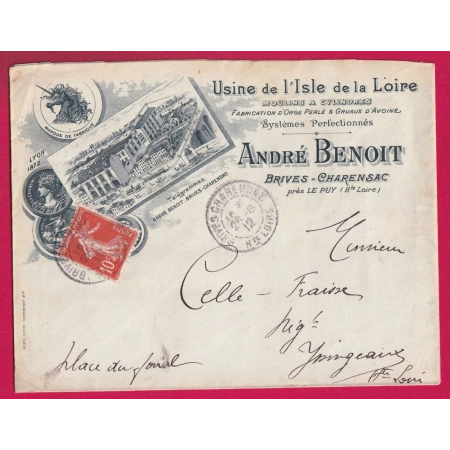 Usine de l'Isle de la Loire
MOULINS A CYLINDRES
FABRICATION D'ORGE PERLÉ & GRUAUX D'AVOINE
Systèmes Perfectionnés
ANDRÉ BENOIT
BRIVES-CHARENSAC
près LE PUY (Hte Loire)
MARQUE DE FABRIQUE
LYON
1872
Télégrammes,
ANDRÉ BENOIT, BRIVES-CHARENSAC
10c
BRIVES CHARENSAC
12
HTE LOIRE
Monsieur
Celle-Fraisse
Nigt
Yssingeaux
Place du foirail
Hte Loire